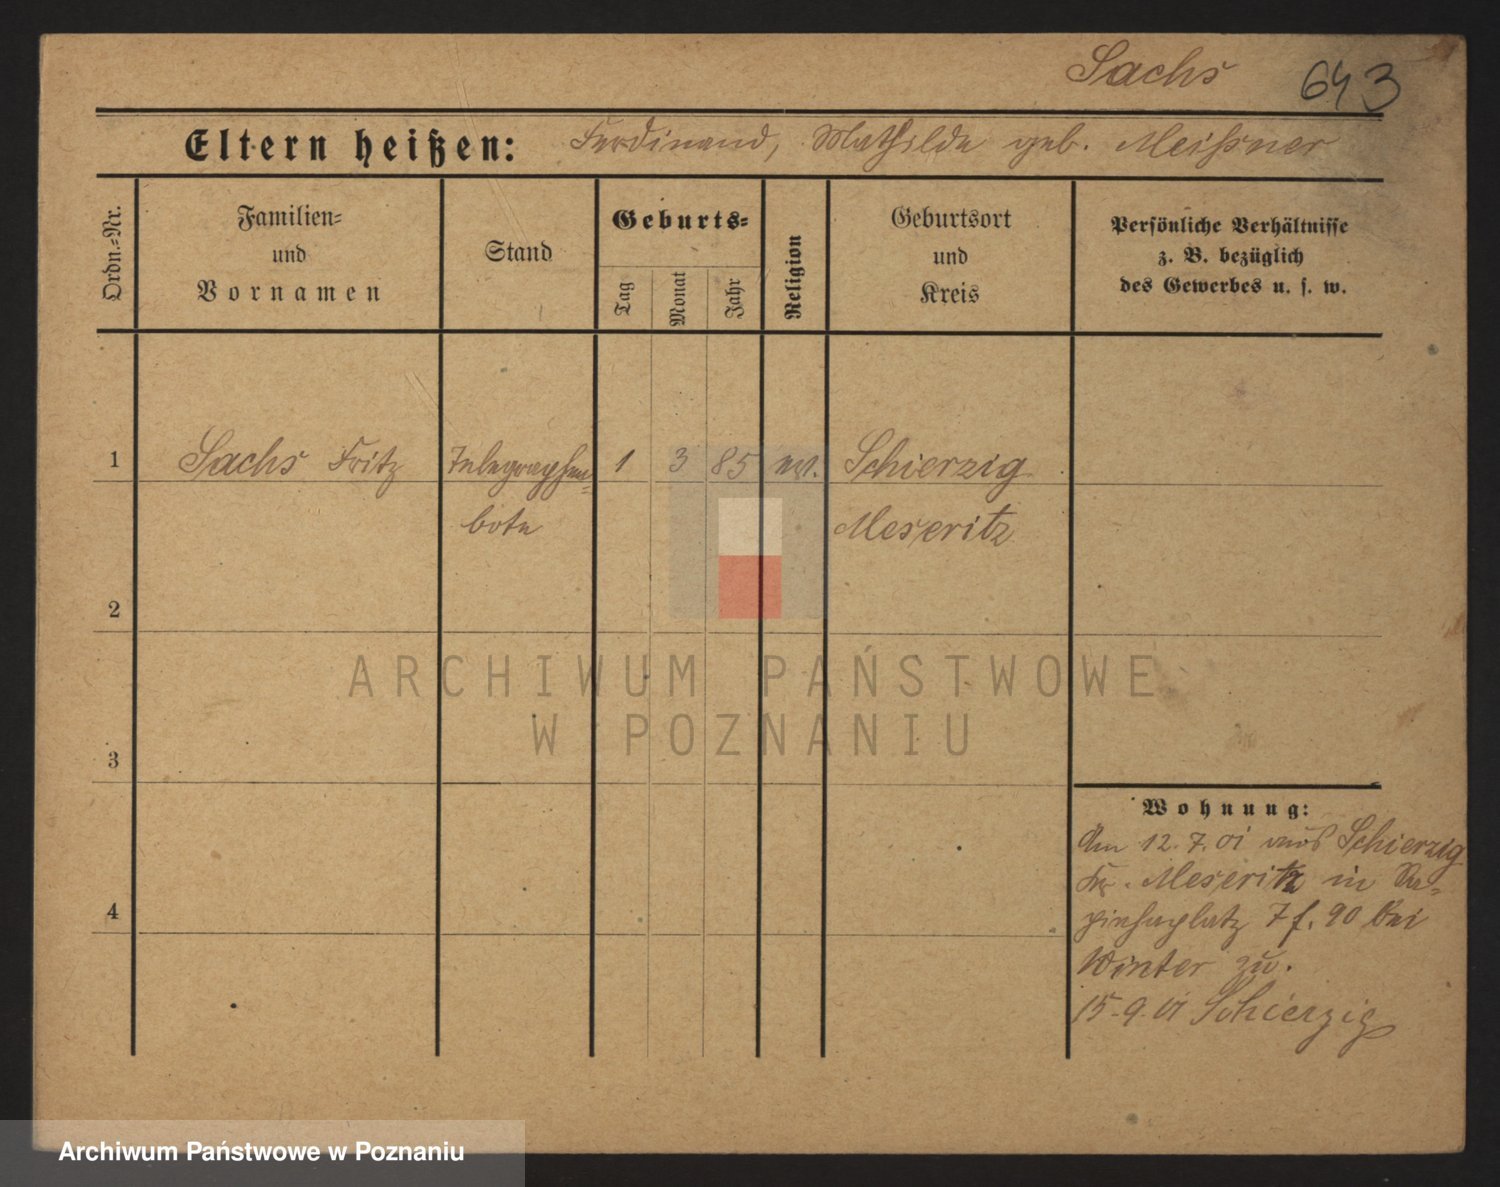 Sachs 643
Eltern heißen: Ferdinand, Mathilde geb. Meißner
Ordn.=Nr.
Familien=
und
Vornamen
Stand
Geburts=
Tag
Monat
Jahr
Religion
Geburtsort
und
Kreis
Persönliche Verhältnisse
z. B. bezüglich
des Gewerbes u. s. w.
1 Sachs Fritz Telegraphen= 1 3 85 ev. Schierzig
bote Meseritz
2
3
4
ARCHIWUM PAŃSTWOWE
W POZNANIU
Wohnung:
Am 12. 7. 01 aus Schierzig
Kr. Meseritz in Sa=
piehaplatz 7 f. 90 bei
Winter zu.
15-9-01 Schierzig
Archiwum Państwowe w Poznaniu